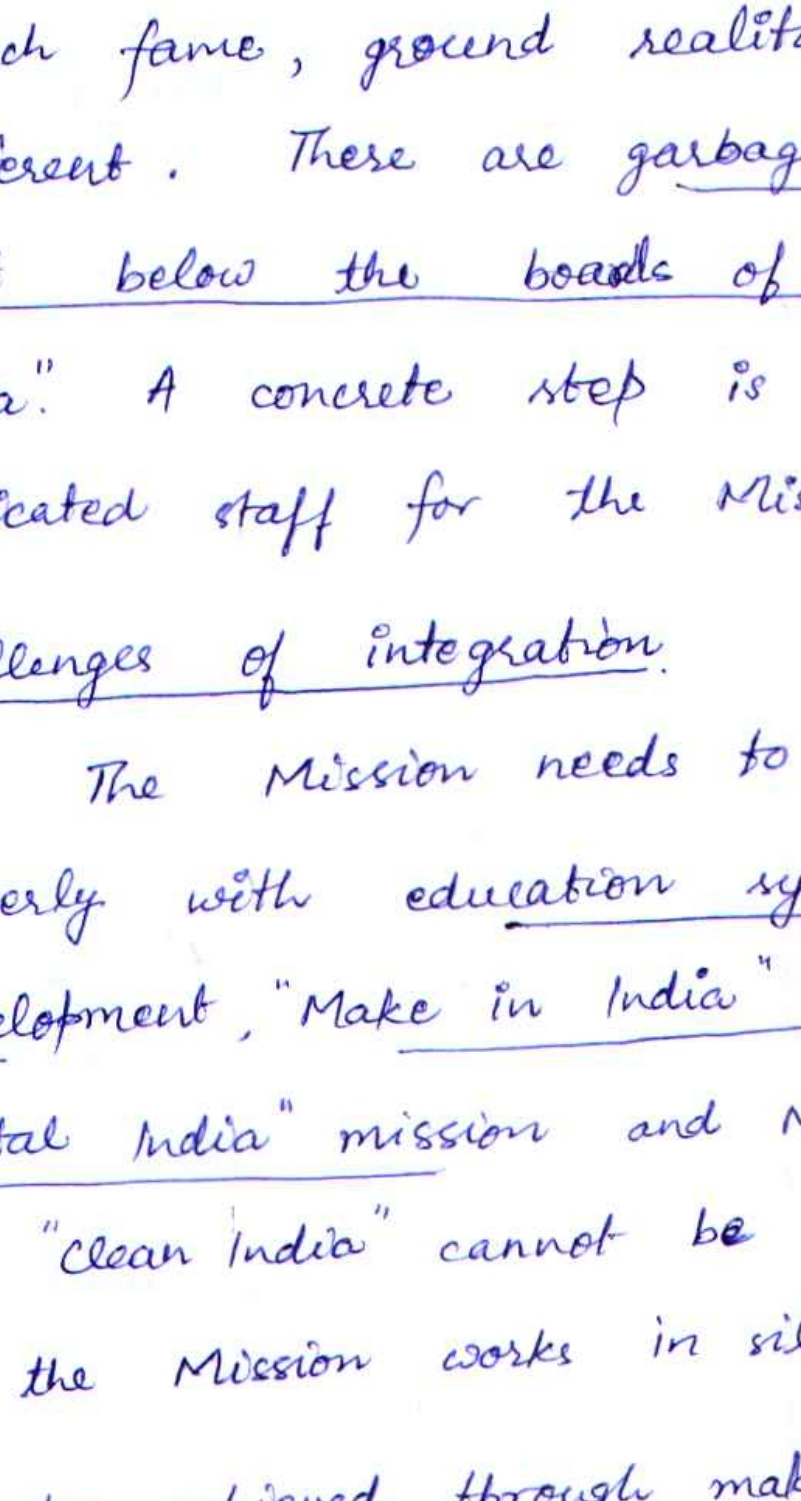 ch fame, ground realit
erent. There are garbag
below the boards of
a". A concrete step is
icated staff for the Mis
llenges of integration.
The Mission needs to
erly with education sy
elopment, "Make in India"
tal India" mission and
"Clean India" cannot be
the Mission works in sil
through mak